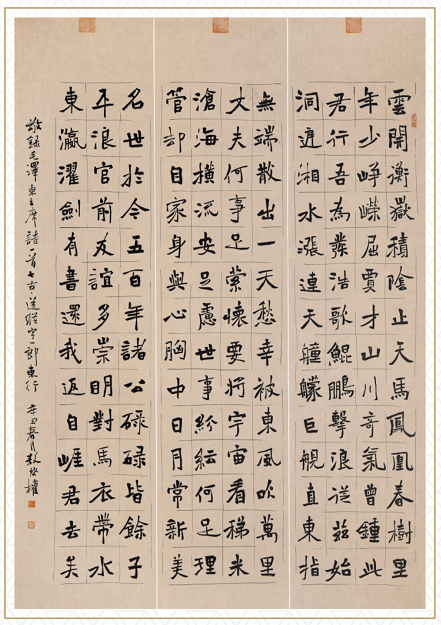 雲開衡嶽積陰止天馬鳳凰春樹里
年少崢嶸屈賈才山川奇氣曾鍾此
君行吾為發浩歌鯤鵬擊浪從茲始
洞庭湘水漲連天艟艨巨艦直東指
無端散出一天愁幸被東風吹萬里
丈夫何事足縈懷要將宇宙看稊米
滄海橫流安足慮世事紛紜何足理
管却自家身與心胸中日月常新美
名世於今五百年諸公碌碌皆餘子
平浪宮前友誼多崇明對馬衣帶水
東瀛濯劍有書還我返自崕君去矣
敬錄毛澤東主席詩一首七古·送縱宇一郎東行 辛丑春月